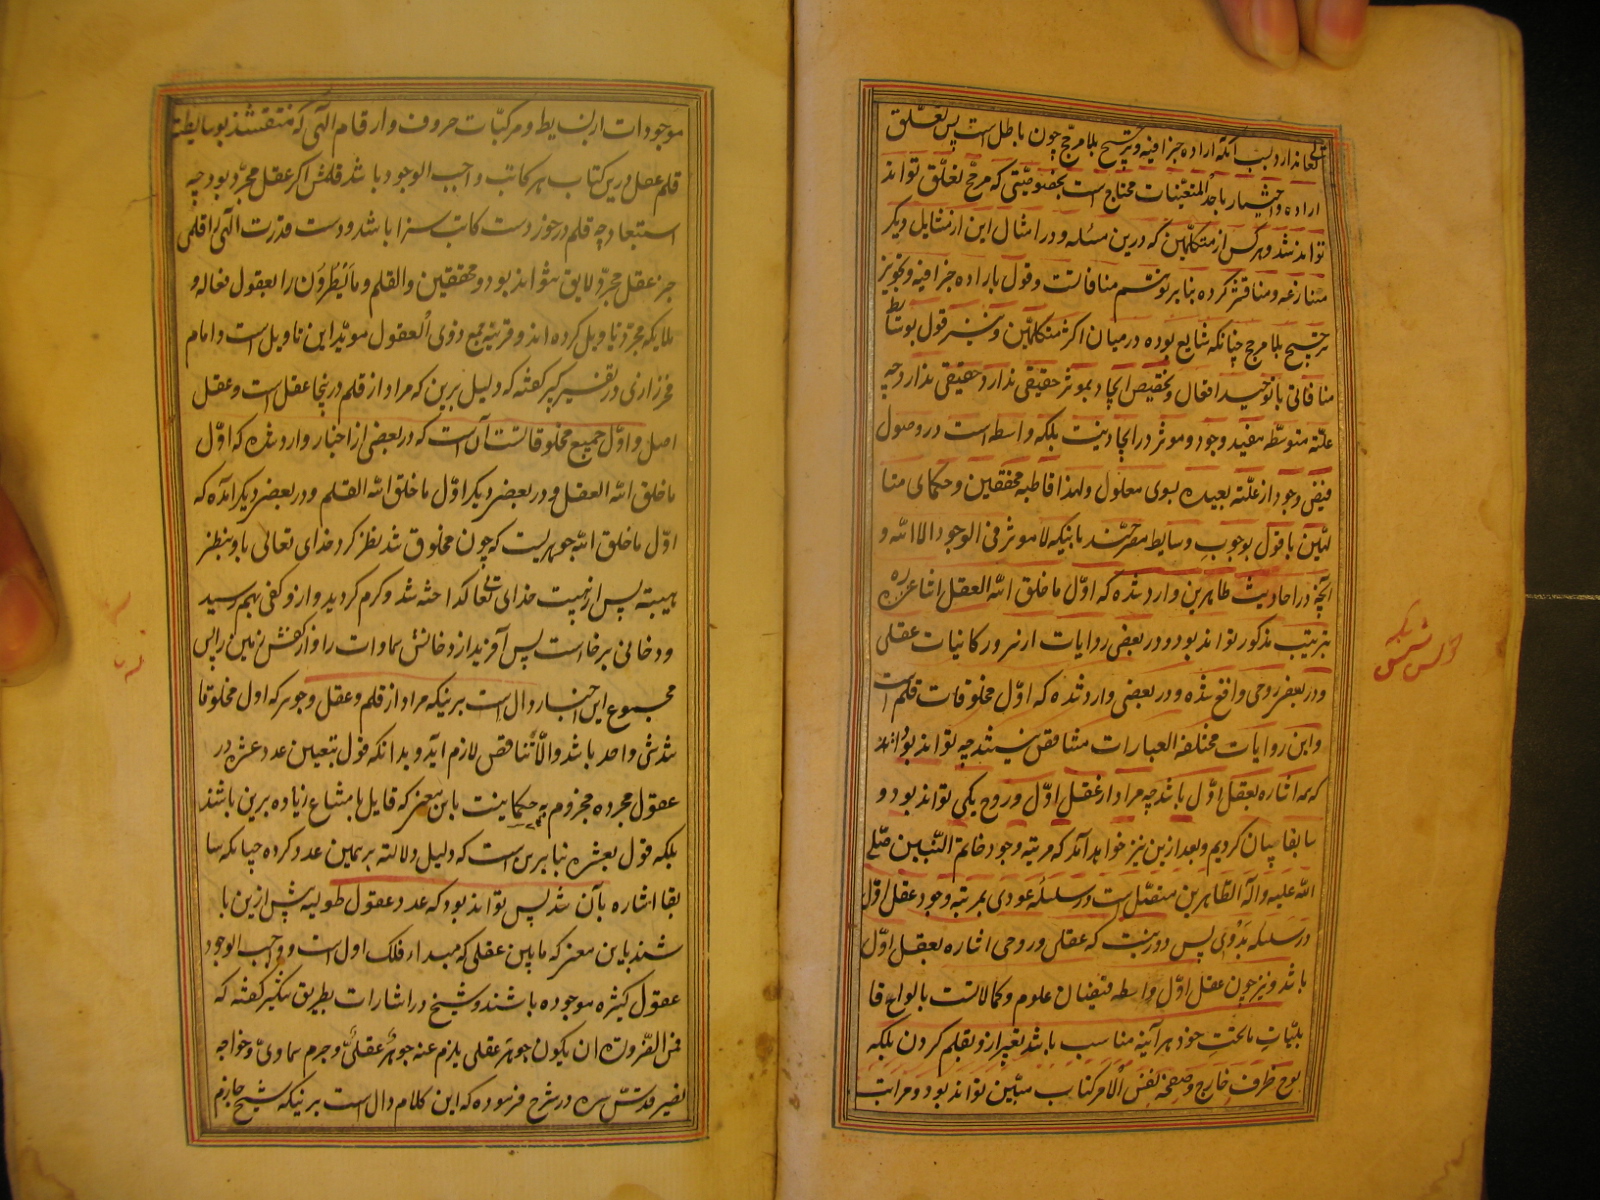 تعالی ندارد بسبب آنکه اراده جزافیه و ترجیح بلا مرجح چون باطل است پس تعلق
اراده و اختیار باحد المتعینات محتاج است بخصوصیتی که مرجح تعلق تواند
تواند شد و هرکس از متکلمین که درین مسئله و در امثال این از مسایل دیگر
منازعه و مناقشه کرده بنابر توهم منافاتست و قول باراده جزافیه و تجویز
ترجیح بلا مرجح چنانکه شایع بوده در میان اکثر متکلمین و نیز قول بوسایط
منافاتی با توحید افعال و تخصیص ایجاد بموثر حقیقی ندارد حقیقی ندارد چه
علت متوسطه مفید وجود و موثر در ایجاد نیست بلکه واسطه است در وصول
فیض وجود از علت بعیده بسوی معلول و لهذا قاطبه محققین و حکمای متا
لهین با قول بوجوب وسایط مصرحند باینکه لا موثر فی الوجود الا الله و
آنچه در احادیث طاهرین وارد شده که اول ما خلق الله العقل اشاره
بترتیب مذکور تواند بود و در بعضی روایات از نور و کانیات عقلی
و در بعضی روحی واقع شده و در بعضی وارد شده که اول مخلوقات قلم است
و این روایات مختلفة العبارات متناقض نیستند چه تواند بود
که همه اشاره بعقل اول باشد چه مراد از عقل اول و روح یکی تواند بود و
سابقا بیان کردیم و بعد ازین نیز خواهد آمد که مرتبه وجود خاتم النبیین صلی
الله علیه و آله الطاهرین متصل است در سلسله عودی بمرتبه وجود عقل اول
در سلسله بدوی پس دور نیست که عقلی و روحی اشاره بعقل اول
باشد و نیز چون عقل اول واسطه فیضان علوم و کمالاتست بالواح قا
بلیات ماتحت خود هر آینه مناسب باشد تعبیر از و بقلم کردن بلکه
لوح ظرف خارج و صفحه نفس الامر کتاب مبین تواند بود و مراتب
موجودات از بسایط و مرکبات حروف و ارقام الهی که منتقش شد بوساطت
قلم عقل درین کتاب هر کاتب واجب الوجود باشد قلمش اگر عقل مجرد بود چه
استبعاد چه قلم در خور دست کاتب سزا باشد و دست قدرت الهی را قلمی
جز عقل مجرد لایق نتواند بود و محققین والقلم و ما یسطرون را بعقول فعاله و
ملایکه مجرده تاویل کرده اند و قرینه جمع ذوی العقول موید این تاویل است و امام
فخر رازی در تفسیر کبیر گفته که دلیل برین که مراد از قلم درینجا عقل است و عقل
اصل و اول جمیع مخلوقاتست آن است که در بعضی از اخبار وارد شده که اول
ما خلق الله العقل و در بعضی دیگر اول ما خلق الله القلم و در بعضی دیگر آمده که
اول ما خلق الله جوهریست که چون مخلوق شد نظر کرد خدای تعالی باو بنظر
هیبت پس از هیبت خدای تعالی گداخته شد و گرم گردید و ازو کفی بهم رسید
و دخانی برخاست پس آفرید از دخانش سماوات را و از کفش زمین را پس
مجموع این اخبار دال است برینکه مراد از قلم و عقل و جوهر که اول مخلوقا
تند شیء واحد باشد و الا تناقض لازم آید و بدانکه قول بتعیین عدد عشره در
عقول مجرده مجزوم به حکما نیست باین معنی که قایل بامتناع زیاده برین باشند
بلکه قول بعشره بنا برین است که دلیل دلالت بر همین عدد کرده چنانکه سا
بقا اشاره بآن شد پس تواند بود که عدد عقول طولیه بیش ازین با
شند باین معنی که مابین عقلی که مبداء فلک اول است و واجب الوجود
عقول کثیره موجوده باشند و شیخ در اشارات بطریق تنکیر گفته که
فمن الضرورة ان یکون جوهر عقلی یلزم عنه جوهر عقلی و جرم سماوی و خواجه
نصیر قدس سره در شرح فرموده که این کلام دال است برینکه شیخ جازم